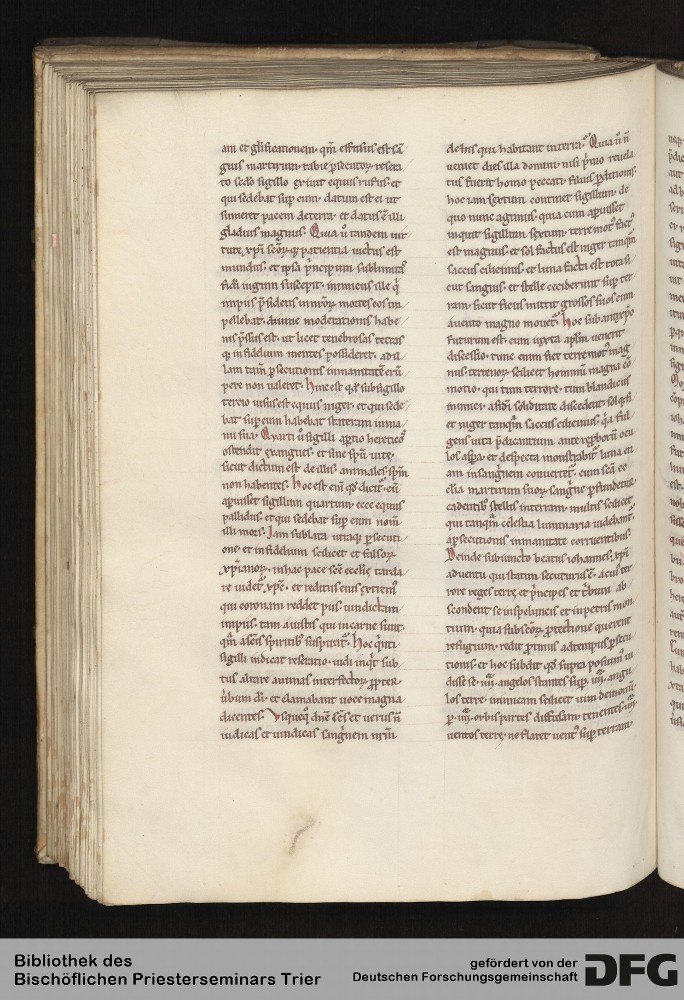 am et glīficationem. qm̄ effusus est sā
guis martirum. rabie ꝑsecutoꝝ. resera
to sc̄do sigillo exiuit equus rufus. et
qui sedebat suꝑ eum. datum est ei ut
sumeret pacem de terra. et datus ē illi
gladius magnus. Quia ū tandem uir
tute xp̄i sc̄oꝝ q; patientia uictus est
mundus. et ipsi p̄ncipum sublimitas
fidei iugum suscepit. inimicus ille q̄
impiis p̄sidens in iuroꝝ mortes eos im
pellebat. diuine moderationis habe
nis p̄ssus est. ut licet tenebrosas tetras
q; infidelium mentes possideret. ad il
lam tam̄ ꝑsecutionis inmanitatē erū
pere non ualeret. hinc est qd̄ sub sigillo
tercio uisus est equus niger. et qui sede
bat suꝑ eum habebat stateram in ma
nu sua. Quarti ū sigilli aꝑtio hereticos
ostendit exangues. et sine sp̄u uite.
sicut dictum est de illis animales. sp̄m
non habentes. hoc est eni qd̄ dicit. cū
aꝑuisset sigillum quartum. ecce equus
pallidus. et qui sedebat suꝑ eum nom̄
illi mors. Iam sublata utraque ꝑsecuti
one. et infidelium scilicet et falsoꝝ
xp̄ianoꝝ. in hac pace sc̄e ecclie tarda
re uidet xp̄c. et reditus eius extremꝰ
qui coronam reddet piis. uindictam
impiis. tam a iustis qui in carne sunt.
qm̄ a sc̄is spiritibꝰ suspirat. hoc q̄nti
sigilli indicat reseratio. uidi inq̄t sub
tus altare animas interfectoꝝ ꝓpter
uerbum di. et clamabant uoce magna
dicentes. Vsquequo dn̄e sc̄s et uerus n̄
iudicas et uindicas sang̃nem nr̄m
de his qui habitant in terra. Quia ū n̄
ueniet dies illa domini. nisi p̄mo reuela
tus fuerit homo peccati. filius ꝑditionis.
hoc iam sextum continet sigillum. de
quo nunc agimus. quia cum aꝑuisset
inquit sigillum sextum. terre motꝰ factꝰ
est magnus. et sol factus est niger tanqm̄
saccus cilicinus. et luna facta est tota si
cut sanguis. et stelle ceciderunt suꝑ ter
ram. sicut ficus mittit grossos suos cum
a uento magno mouet. hoc sub antixpō
futurum est. cum iuxta aplm̄ uenerit
discessio. tunc enim fiet terre motꝰ mag
nus. terrenoꝝ scilicet hominum magna cō
motio. qui tum terrore. tum blandiciis
inimici. a fidei soliditate discedent. sol q; fi
et niger tanqm̄ saccus cilicinus. q̄a ful
gens uita p̄dicantium ante reproboꝝ ocu
los aspera. et despecta monstrabit. luna eti
am in sang̃nem conuertet. cum sc̄a ec
clia martirum suoꝝ sang̃ne ꝑfundetur.
cadentibꝰ stellis in terram. multis scilicet
qui tanqm̄ celestia luminaria uidebant.
a ꝑsecutionis inmanitate corruentibus.
Deinde subiuncto beatus iohannes. xp̄i
aduentu qui statim secuturus ē. a cuiꝰ ter
rore reges terrę et p̄ncipes et t̄buni ab
scondent se in speluncis et in petris mon
tium. quia sub sc̄oꝝ ꝓtectione querent
refugium. redit ꝓtinus ad tempus ꝑsecu
tionis. et hoc subdit qd̄ supra possum ui
disse se .iiii. angelos stantes suꝑ .iiii. angu
los terre. inimicam scilicet uim demonū.
ꝑ .iiii. orbis partes diffusam. tenentes .iiii.
uentos terrę. ne flaret uentꝰ suꝑ terram.
Bibliothek des
Bischöflichen Priesterseminars Trier
gefördert von der
Deutschen Forschungsgemeinschaft
DFG